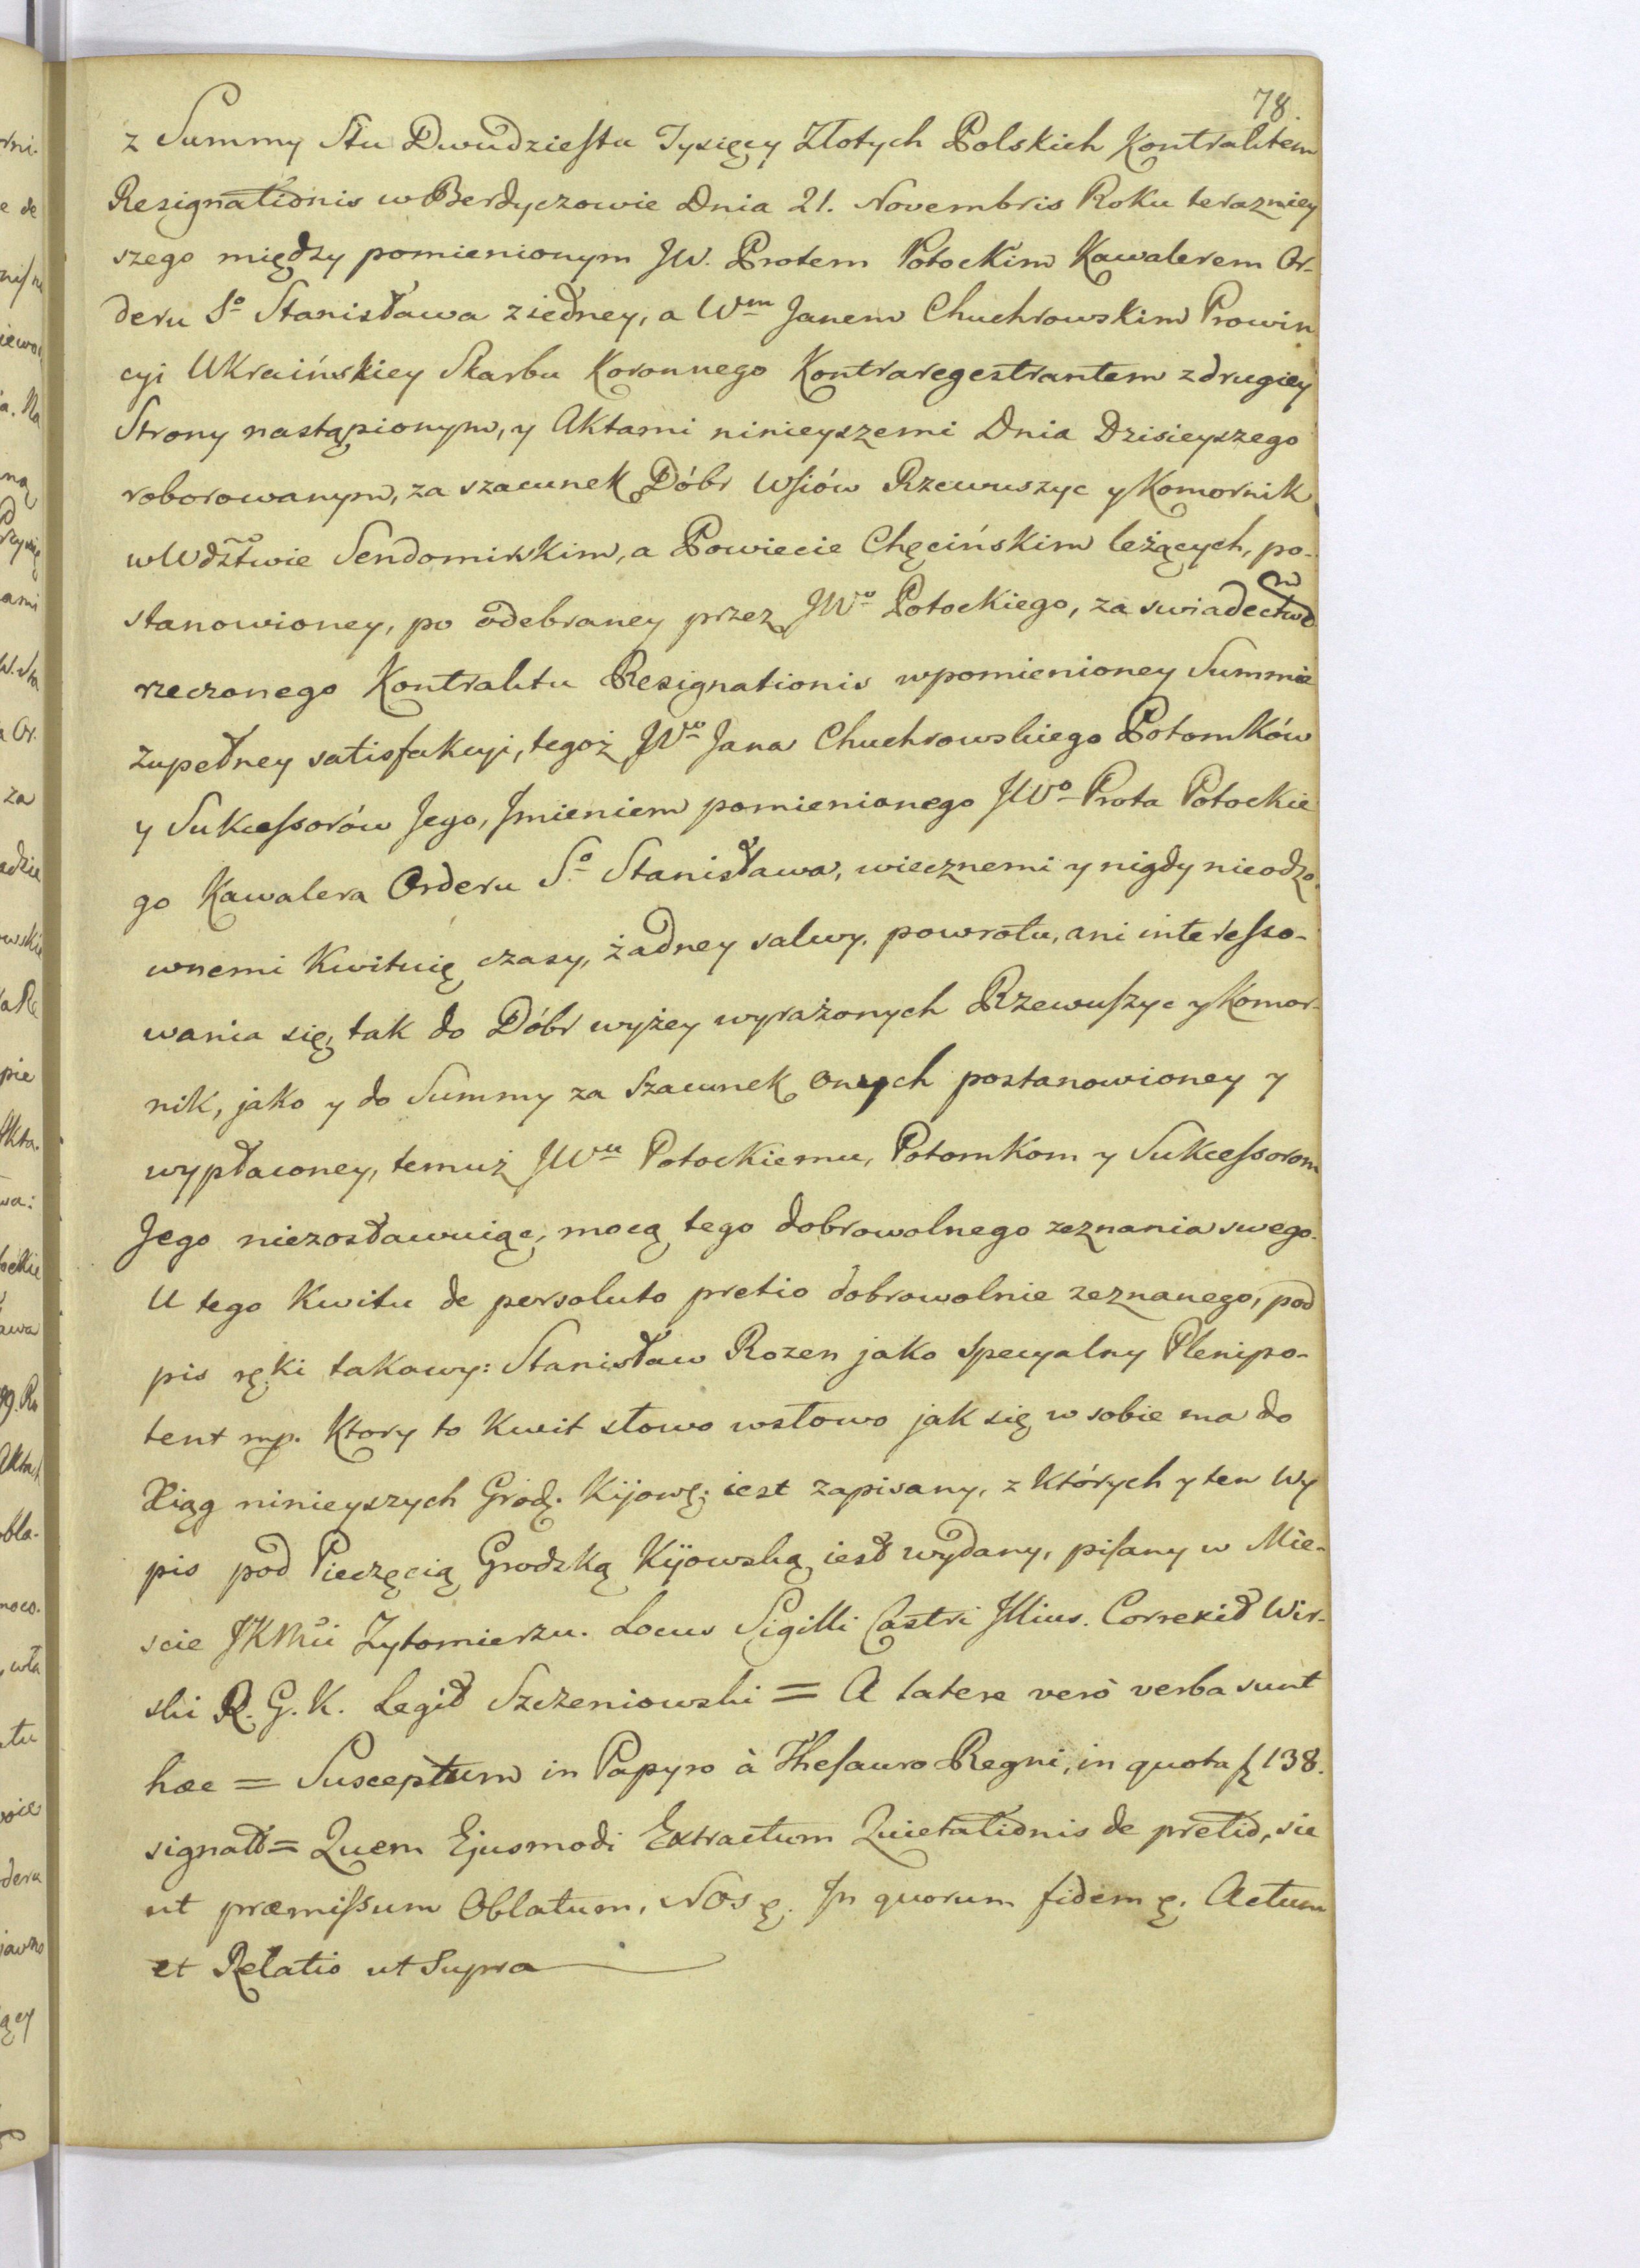 78.
z Summy Stu Dwudziestu Tysięcy Złotych Polskich Kontraktem
Resignationis w Berdyczowie Dnia 21. Novembris Roku terazniey
szego między pomienionym JW. Protem Potockim Kawalerem Or-
deru Sº Stanisława z iedney, a Wm Janem Chuchrowskim Prowin
cyi Ukraińskiey Skarbu Koronnego Kontraregestrantem z drugiey
Strony nastąpionym, y Aktami ninieyszemi Dnia Dzisieyszego
roborowanym, za szacunek Dóbr Wsiów Rzewuszyc y Komornik
w Wdztwie Sendomirskim, a Powiecie Chęcińskim leżących, po-
stanowioney, po odebraney przez JWº Potockiego, za swiadectwem
rzeczonego Kontraktu Resignationis w pomienioney Summie
zupełney satisfakcyi, tegoż JWº Jana Chuchrowskiego Potomków
y Sukcessorów Jego, Jmieniem pomienionego JWº Prota Potockie
go Kawalera Orderu Sº Stanisława, wiecznemi y nigdy nieodzo-
wnemi Kwituię czasy, żadney salwy, powrotu, ani interesso-
wania się, tak do Dóbr wyżey wyrażonych Rzewuszyc y Komor-
nik, jako y do Summy za Szacunek onych postanowioney y
wypłaconey, temuż JWu Potockiemu, Potomkom y Sukcessorom
Jego niezostawuiąc, mocą tego dobrowolnego zeznania swego.
U tego Kwitu de persoluto pretio dobrowolnie zeznanego, pod
pis ręki takowy: Stanisław Rozen jako specyalny Plenipo-
tent mp. Ktory to Kwit słowo w słowo jak się w sobie ma do
Xiąg ninieyszych Grod. Kijows. iest zapisany, z których y ten Wy
pis pod Pieczęcią Grodzką Kijowską iest wydany, pisany w Mie-
scie JKMci Zytomierzu. Locus Sigilli Castri Illius. Correxit Wir-
ski R. G. K. Legit Szczeniowski = A latere verò verba sunt
hæc = Susceptum in Papyro à Thesauro Regni, in quota f 138.
signato = Quem Ejusmodi Extractum Quietationis de pretio, sic
ut præmissum Oblatum, Nos &. In quorum fidem &. Actum
et Relatio ut Supra